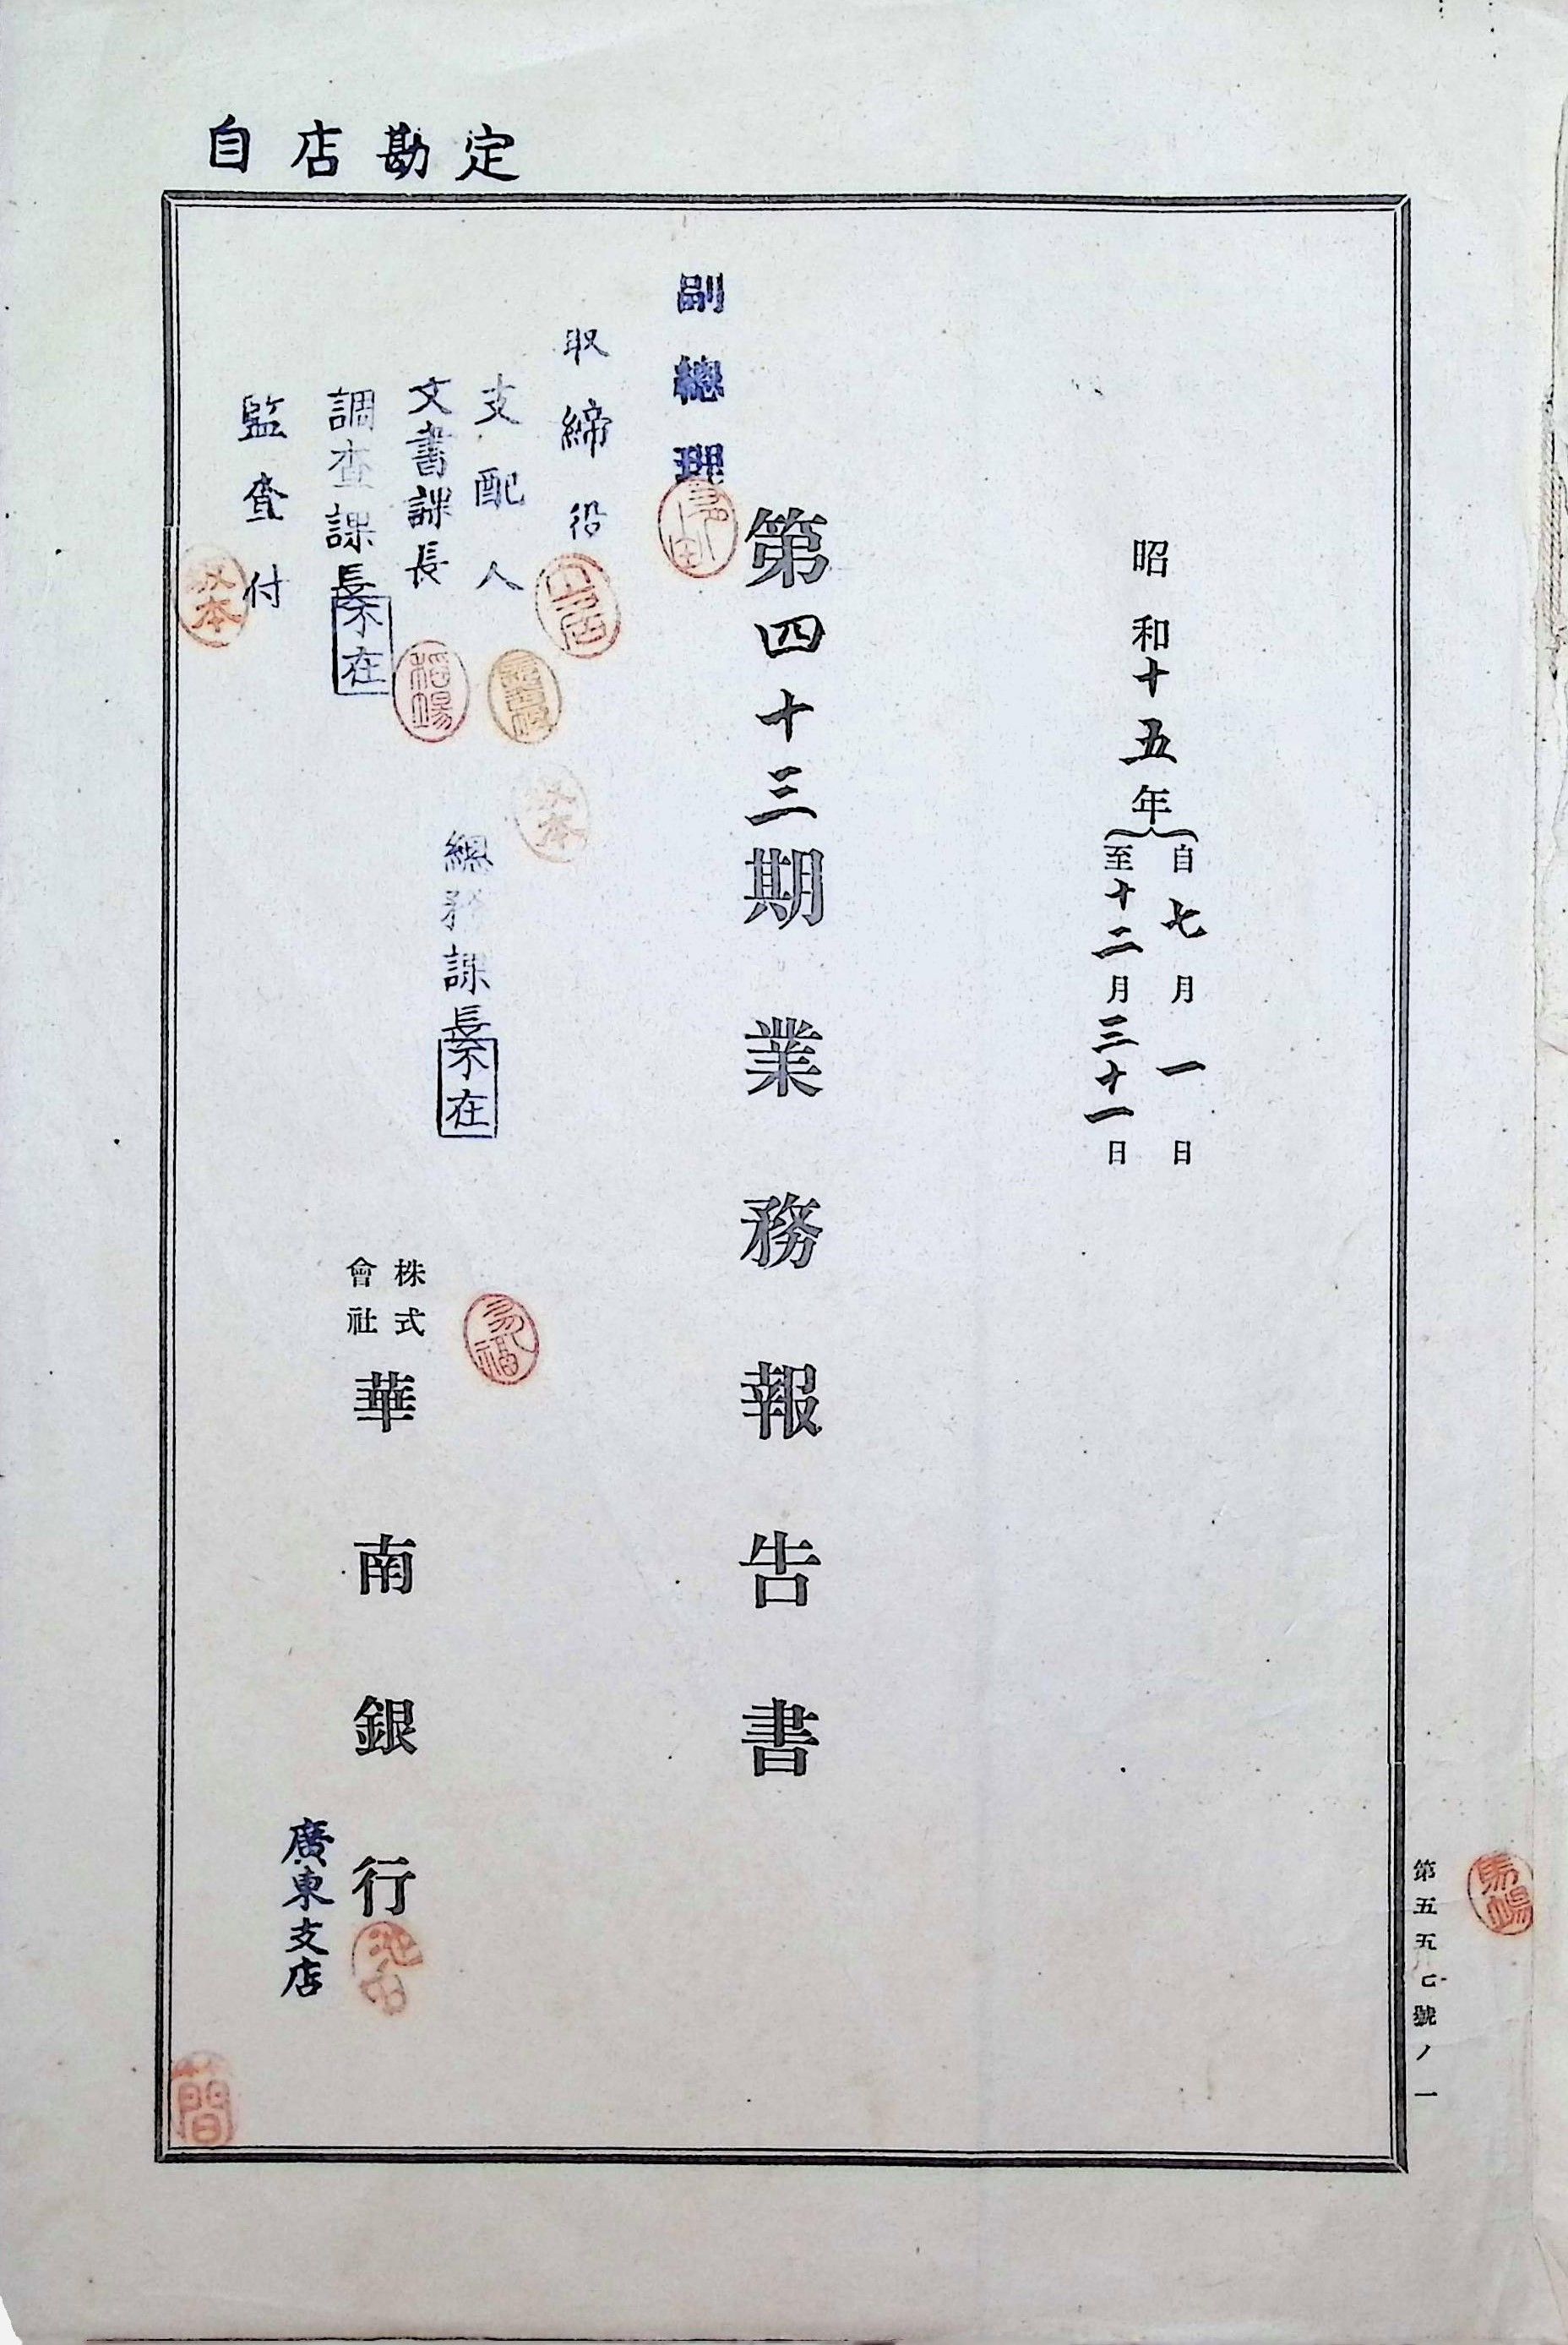 自店勘定
昭和十五年
自七月一日
至十二月三十一日
第四十三期業務報告書
副總理
取締役
支配人
文書課長
調査課長
不在
監査付
坂本
坂本
總務課長
不在
株式會社
華南銀行
廣東支店
簡